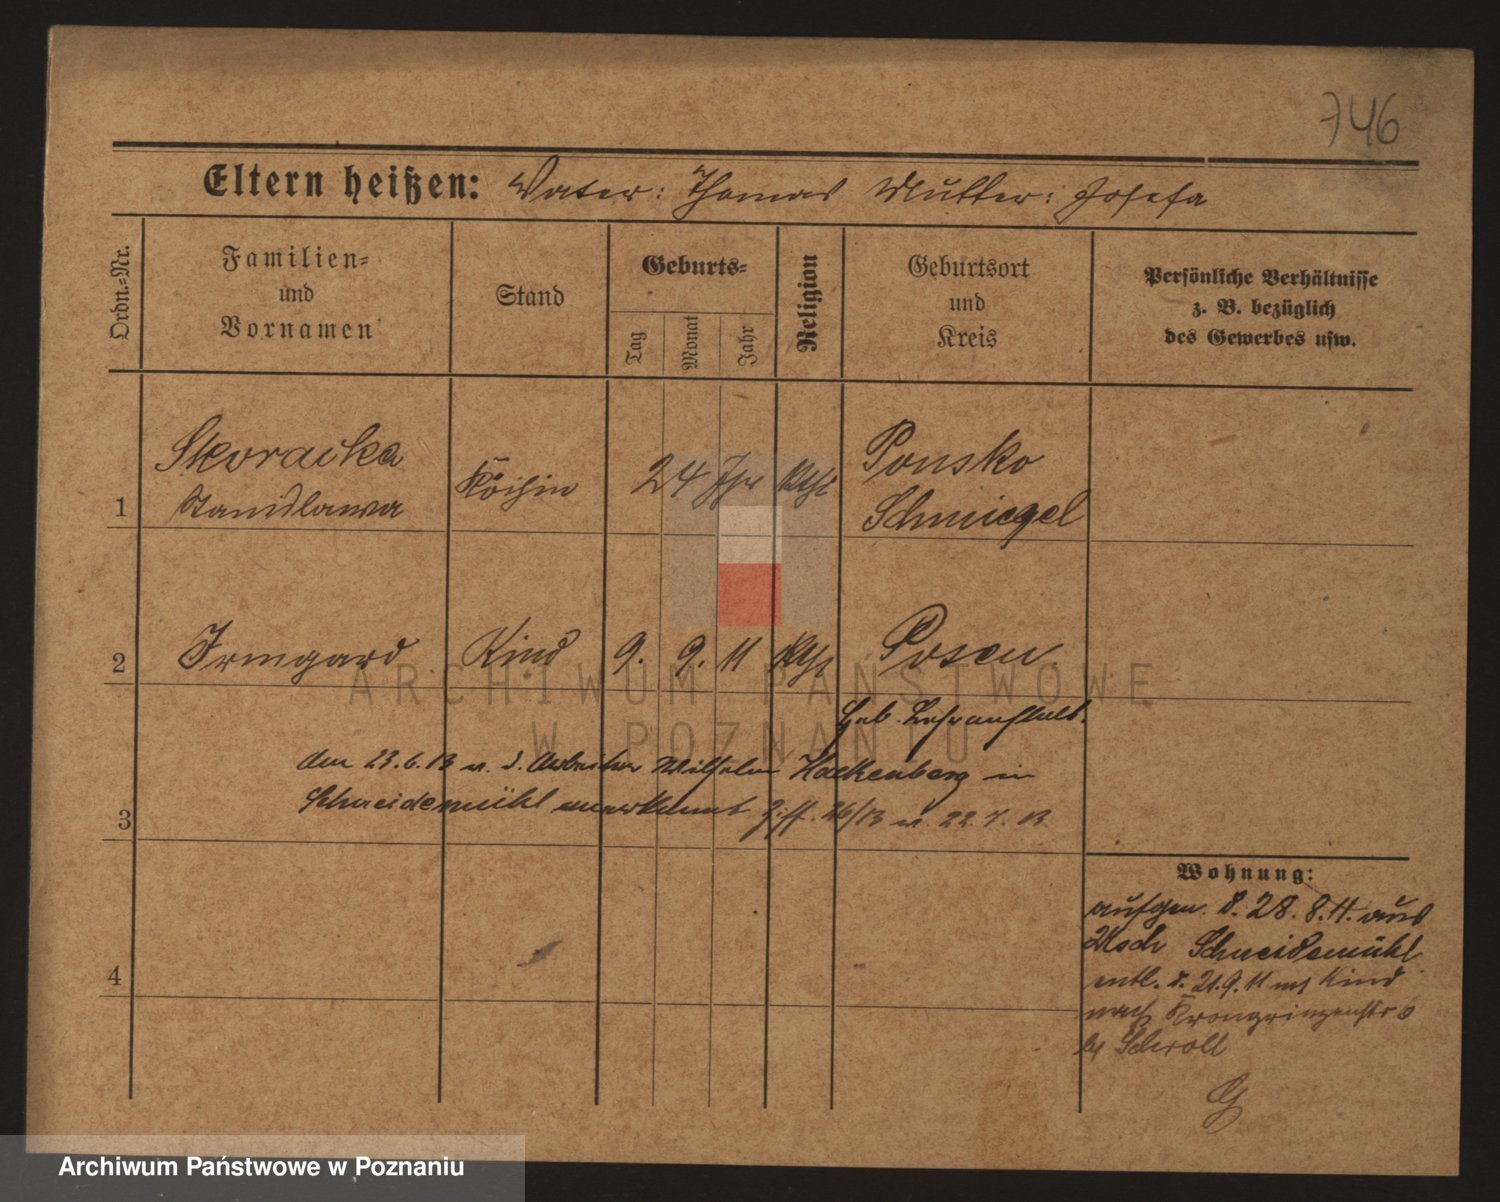 746
Eltern heißen: Vater: Thomas Mutter: Josefa
Ordn.-Nr.
Familien-
und
Vornamen
Stand
Geburts-
Tag
Monat
Jahr
Religion
Geburtsort
und
Kreis
Persönliche Verhältnisse
z. B. bezüglich
des Gewerbes usw.
1
Skoracka
Stanislawa
Köchin
24 Jhr
kth
Ponsko
Schmiegel
2
Irmgard
Kind
9. 9. 11
kth
Posen
Geb.
3
den 23.6.13 v. d. Arbeiter Wilhelm Hackenberg in
Schneidemühl anerkannt 26/13 v. 22.7.13
4
Wohnung:
aufgen. d. 28. 8. 11. aus
Usch Schneidemühl
entl. d. 21.9.11 mit Kind
nach Kronprinzenstr 6
bei Scholl
G
ARCHIWUM PAŃSTWOWE
W POZNANIU
Archiwum Państwowe w Poznaniu